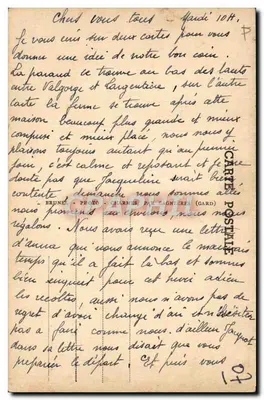 Chers vous tous - Mardi 10H.
Je vous écris sur deux cartes pour vous
donner une idée de notre bon coin.
La parand se trouve au bas des bauts
entre Valgorge et Largentière, sur l'autre
carte la ferme se trouve après cette
maison beaucoup plus grande et mieux
et mieux placé, nous nous y
plaisons toujours autant qu'au premier
jour, c'est calme et reposant et je ne
doute pas que Jacqueline serait bien
contente, dimanche nous sommes allés
nous
régalons. Nous avons reçu une lettre
d'anna qui nous annonce le mauvais
temps qu'il a fait là bas et sommes
bien pour cet hiver adieu
les récoltes, aussi nous n'avons pas de
regret d'avoir changé d'air
pas à faire comme nous. d'ailleurs
dans sa lettre nous disait que vous
préparer le départ, Et puis vous
CARTE POSTALE
(GARD)
07